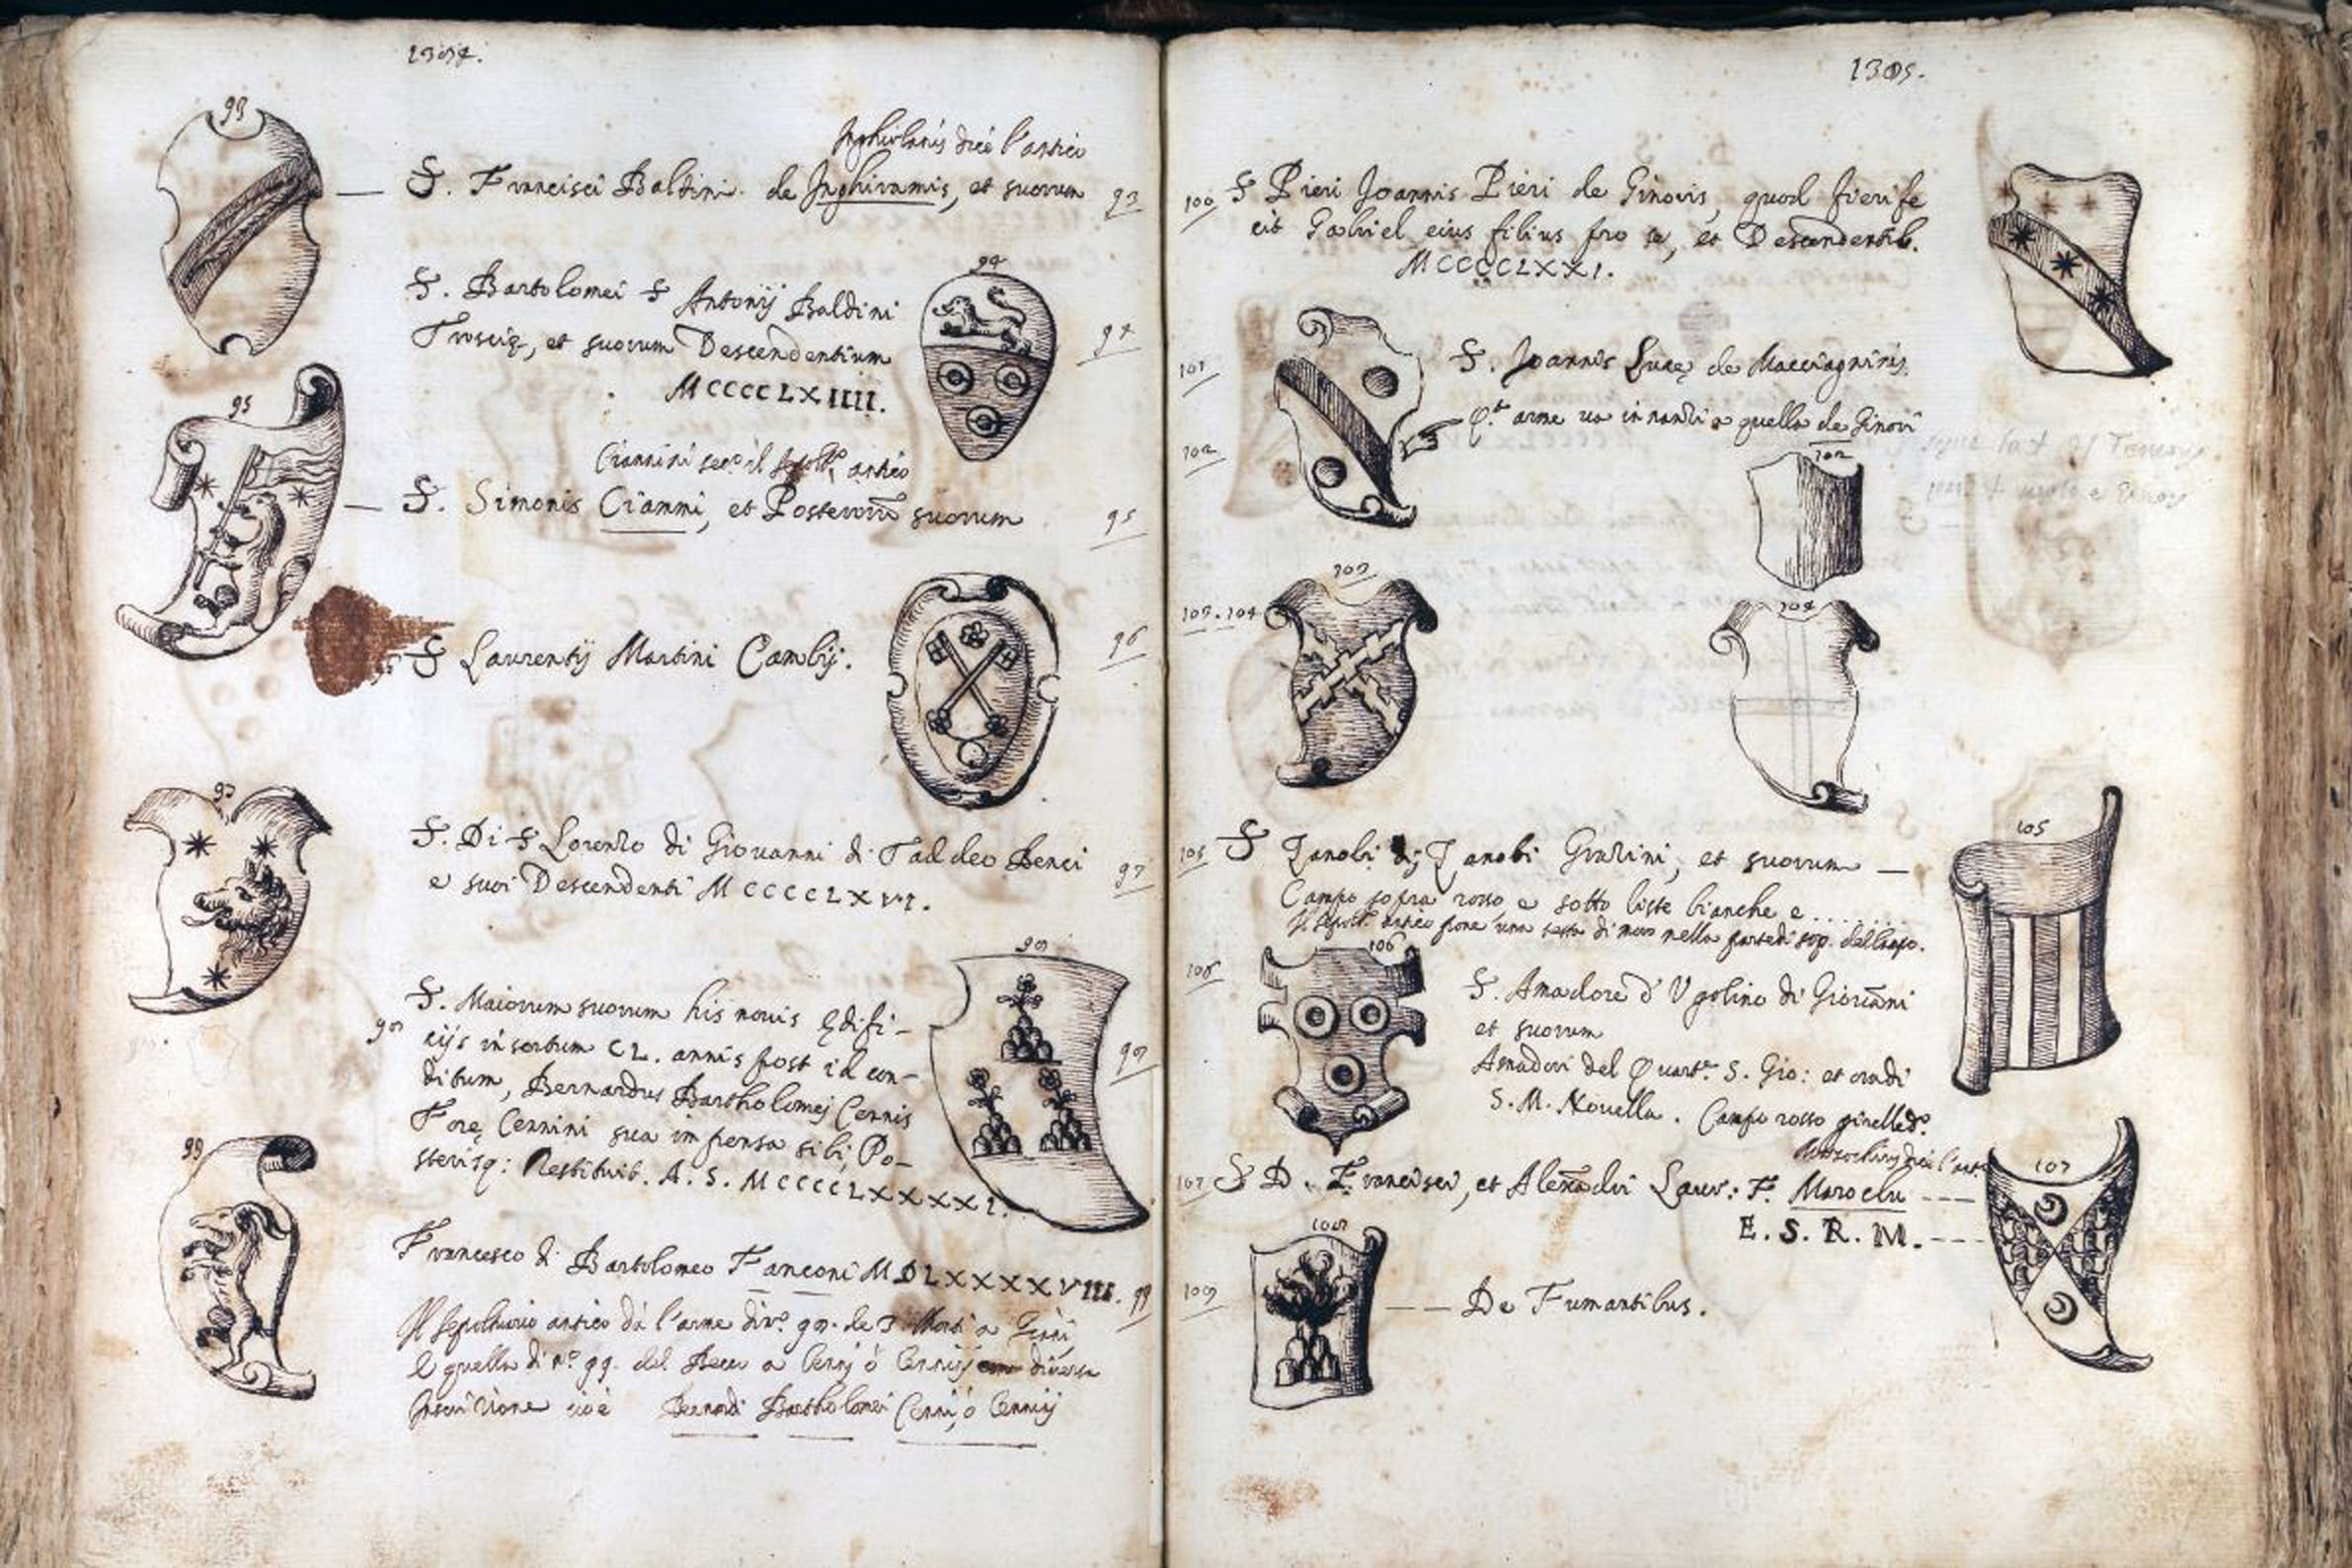 1304.
93
Inghirlanis dice l'antico
S. Francisci Baldini de Inghiramis, et suorum 93
94
S. Bartolomei S Antonij Baldini
Troscię, et suorum Descendentium 94
MCCCCLXIIII.
95
Ciannini seco il sepolto antico
S. Simonis Ciammi, et Posterorum suorum 95
S Laurentij Martini Cambij. 96
97
S. Di S Lorenzo di Giovanni di Taddeo Benci
e suoi Descendenti MCCCCLXVI. 97
98
S. Maiorum suorum his novis ędifi-
98 cijs insertum CL. annis post id con- 98
ditum, Bernardus Bartholomej Cennis
Forę Cennini sua impensa sibi, Po-
sterisq: Restituit. A. S. MCCCCLXXXXI.
99
Francesco di Bartolomeo Fanconi MDLXXXXVIII. 99
Il sepoltuario antico dà l'arme di n.º 98. de 3 Monti a
e quella di n.º 99. del Becco a Cennj ò Cennisj diversa
Inscrizione cioè Bernardi Bartholomei Cennj, ò Cennisj
1305.
100 S Pieri Joannis Pieri de Ginoris, quod fieri fe
cit Gabriel eius filius pro se, et Descendentib.
MCCCCLXXI.
101 S. Joannis Lucę de Macciagninis.
102 Q.ta arme va innanzi a quella de Ginori
102
103
103. 104
104
105
105 S Zanobi di Zanobi Girolini, et suorum
Campo sopra rosso e sotto liste bianche e . . . . . . .
Il sepolt. antico pone una testa di moro nella parte di sop. del
106
106 S. Amadore d' Ugolino di Giovãni
et suorum
Amadori del Quart.e S. Gio: et
S. M. Novella. Campo rosso girelle d'o.
dice l'ant.
107 S D. Francisci, et Alexãdri Laur: F. Marochi
107
E. S. R. M.
108
108 De Fumantibus.